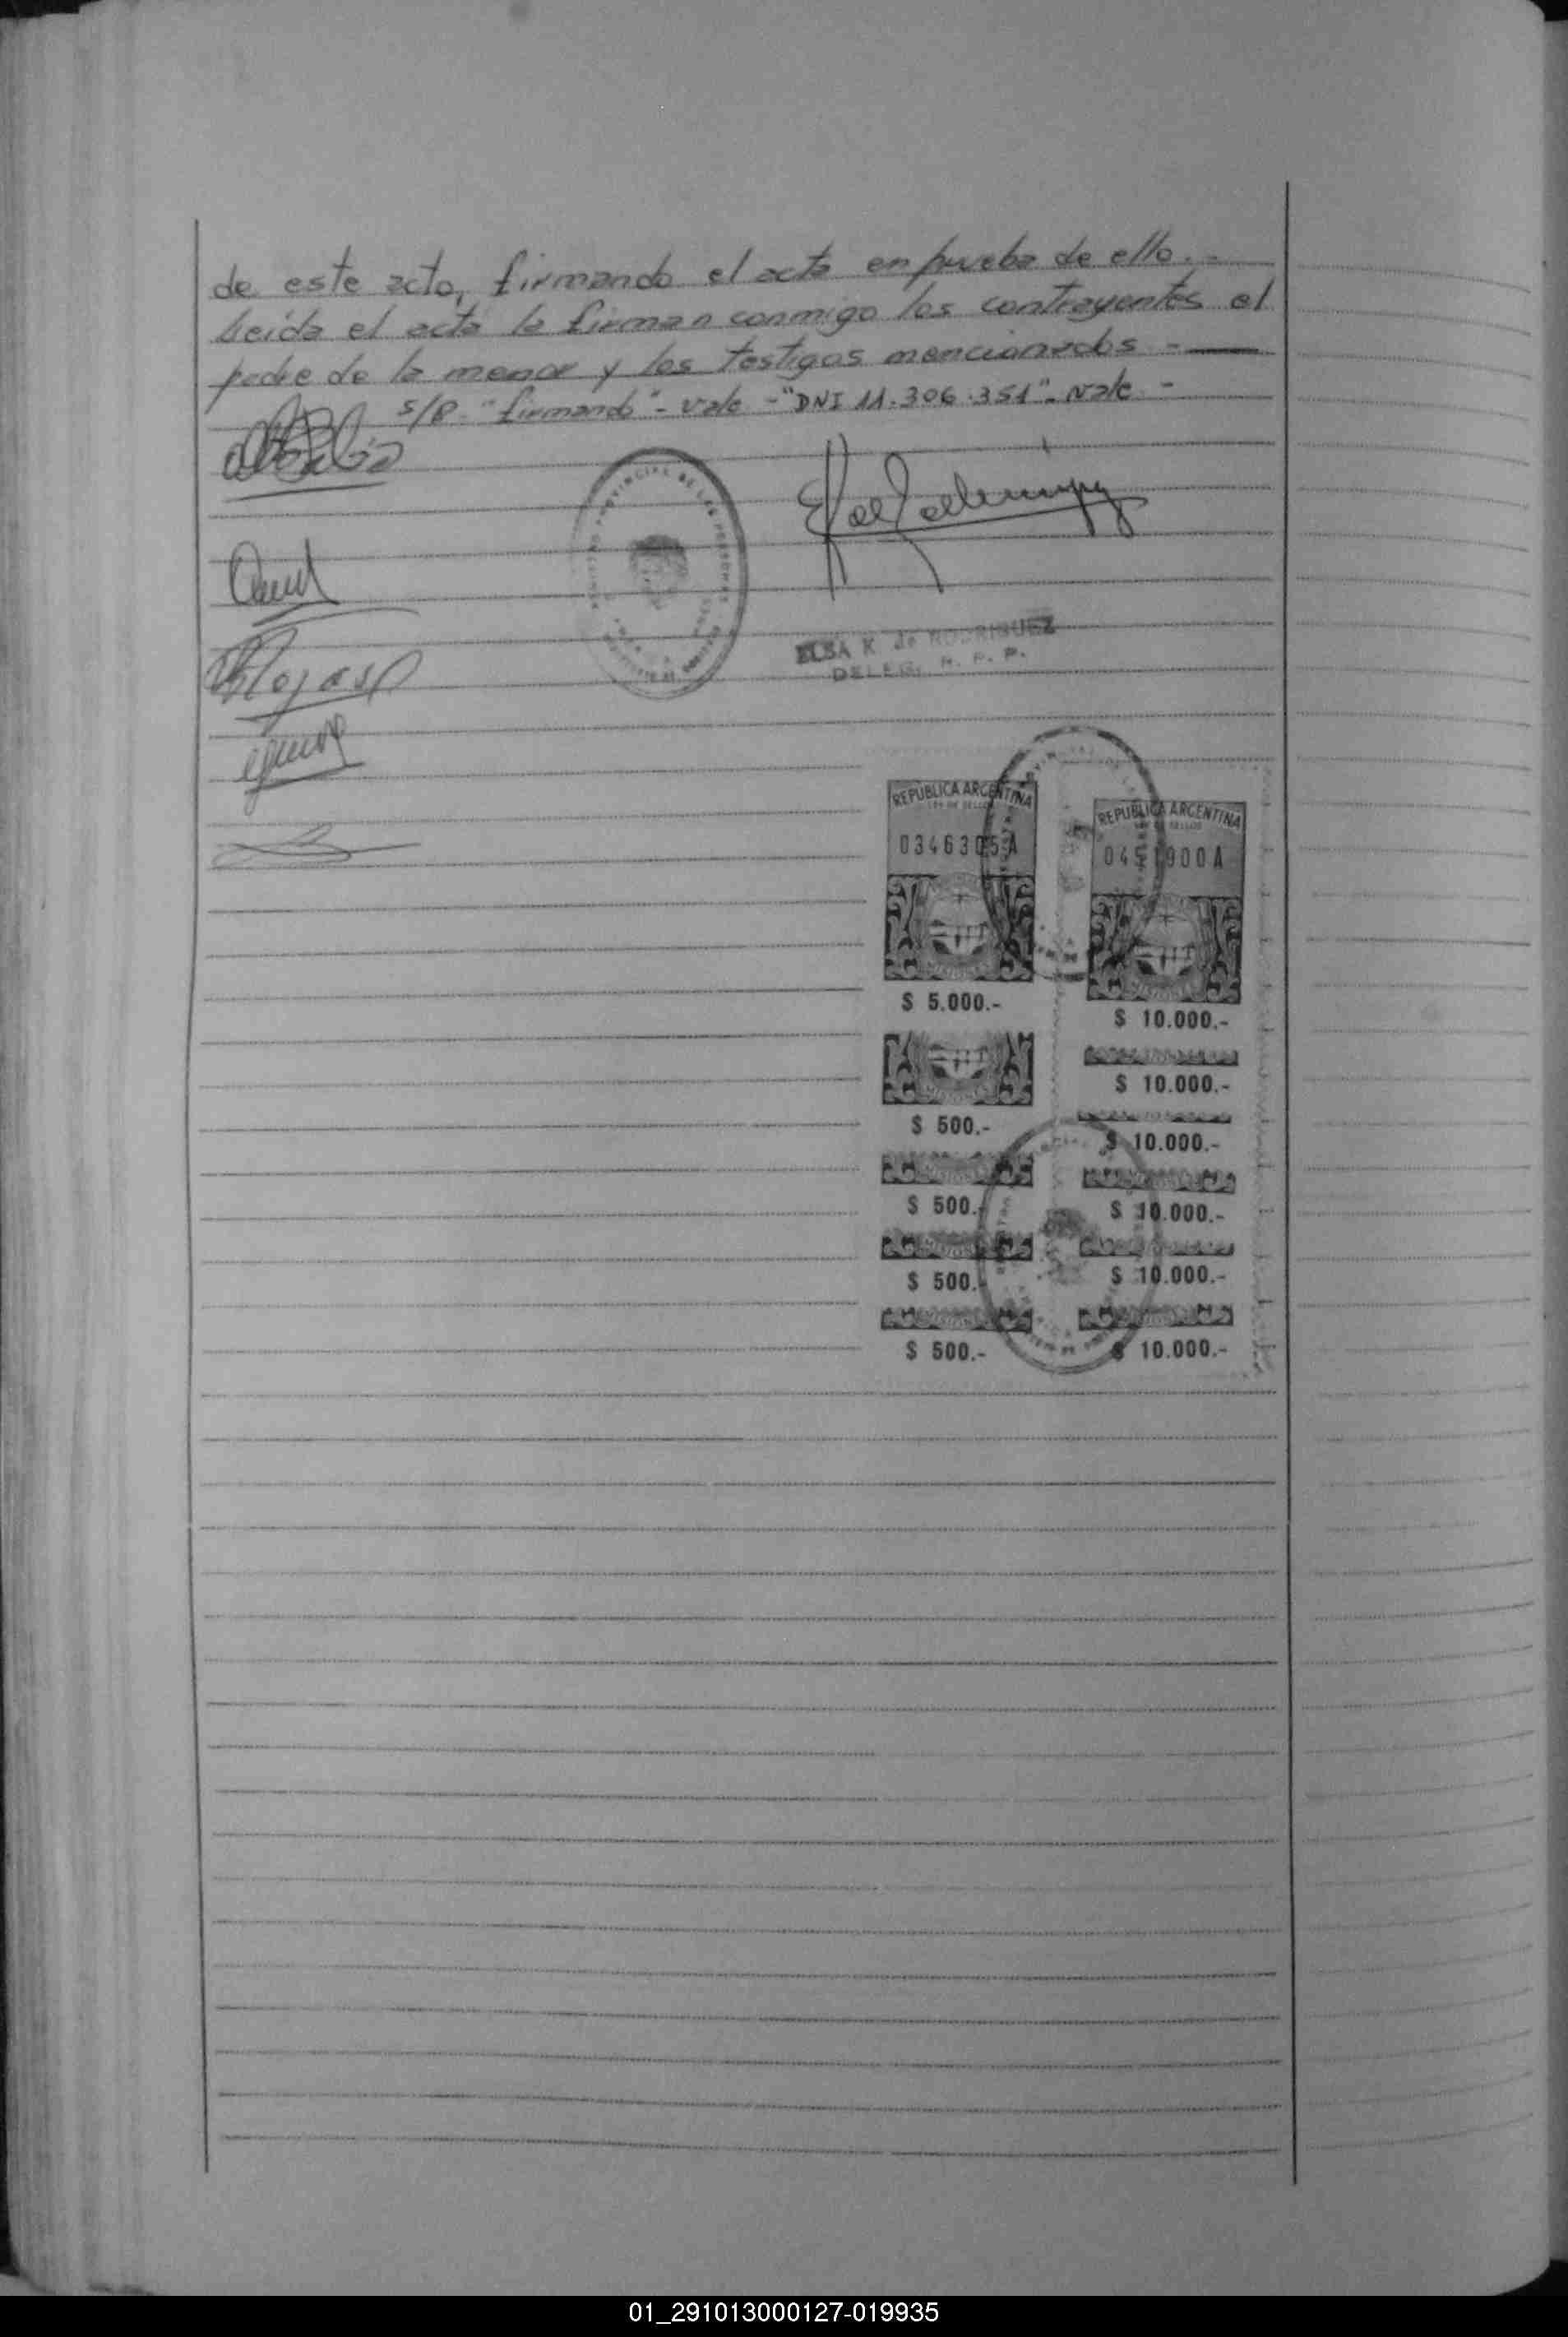 de este acto, firmando el acta en prueba de ello.-
Leída el acta la firman conmigo los contrayentes el
padre de la menor y los testigos mencionados -
s/p. "firmando" - vale - "DNI 11.306.351" - vale -
Rojas
ELSA K de RODRIGUEZ
DELEG. R. P. P.
REPUBLICA ARGENTINA
LEY DE SELLOS
0346305A
$ 5.000.-
$ 500.-
$ 500.-
$ 500.-
$ 500.-
REPUBLICA ARGENTINA
LEY DE SELLOS
0451900A
$ 10.000.-
$ 10.000.-
$ 10.000.-
$ 10.000.-
$ 10.000.-
$ 10.000.-
01_291013000127-019935